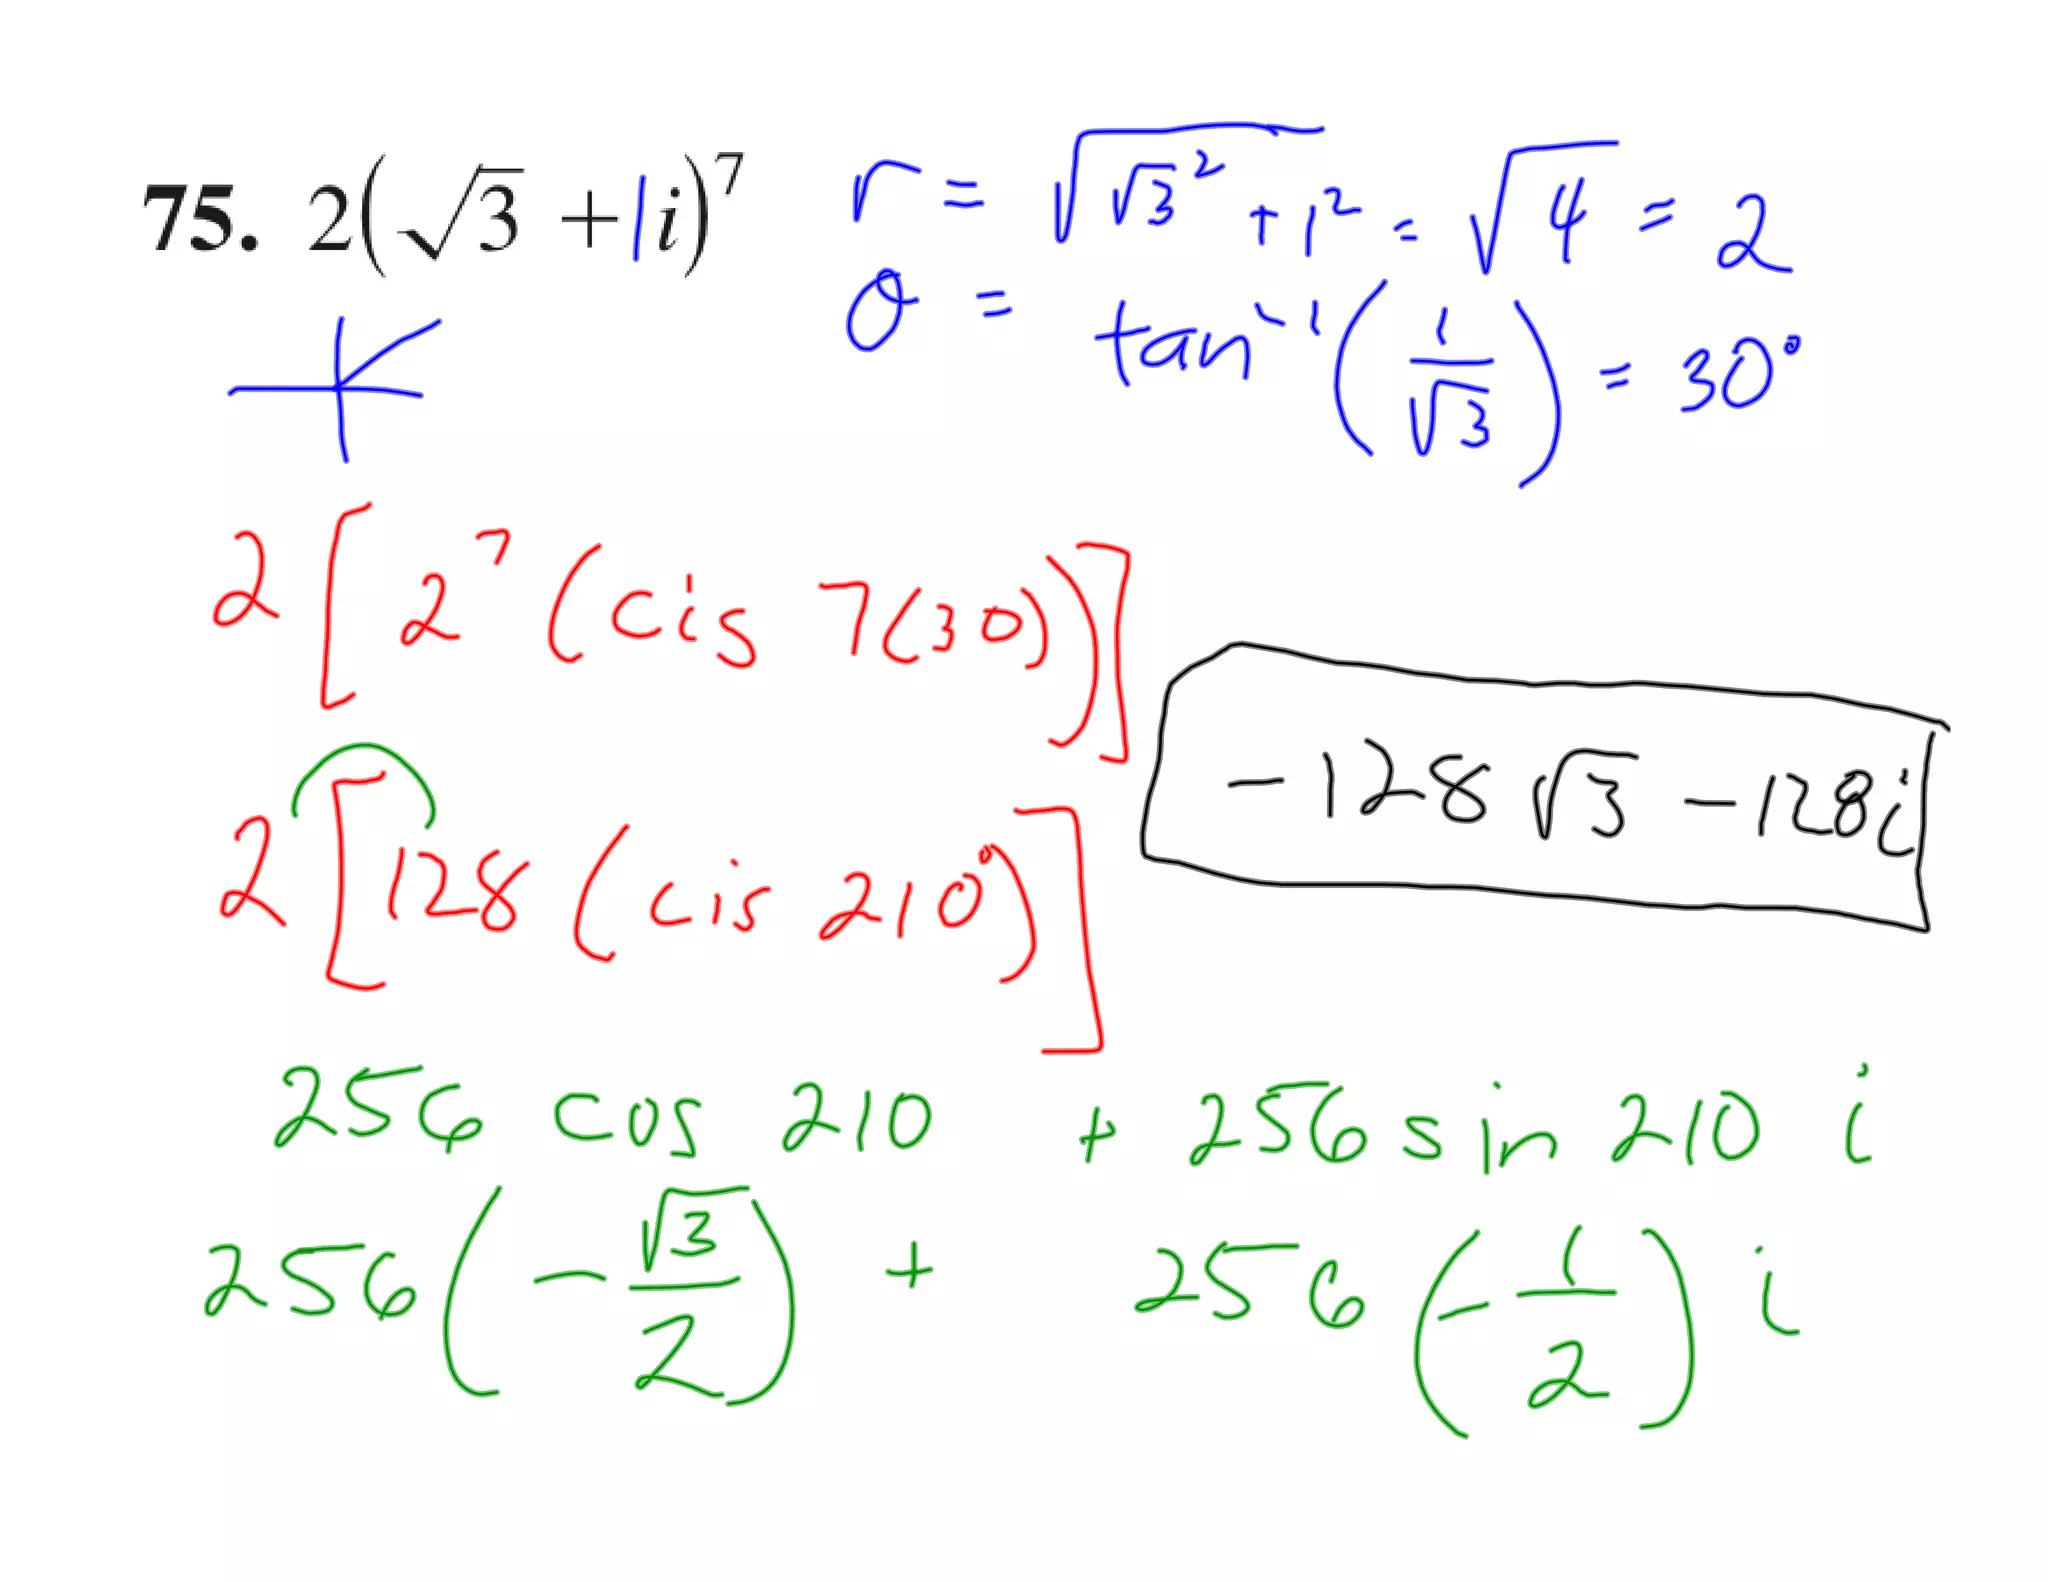 75. 2(√3 + 1i)⁷
r = √(√3² + 1²) = √4 = 2
θ = tan⁻¹(1/√3) = 30°
2[2⁷(cis 7(30))]
2[128(cis 210°)]
-128√3 - 128i
256 cos 210 + 256 sin 210 i
256(-√3/2) + 256(-1/2)i